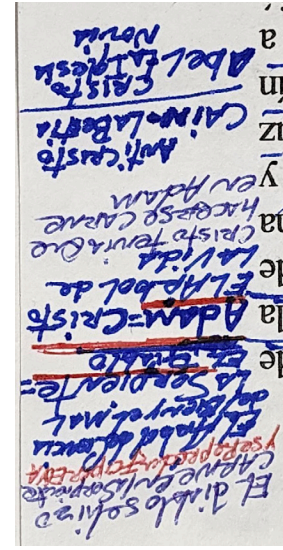 El diablo se hizo
carne en la serpiente
y se reprodujo por EVA
El Arbol de la
del Bien y el mal
La Serpiente=
El Diablo
de
Adam=Cristo
la
El Arbol de
de
La Vida
Cristo tenia que
hacerse carne
en Adam
y
Anti Cristo
Cain=La Bestia
Cristo
Abel La Iglesia
Novia
a